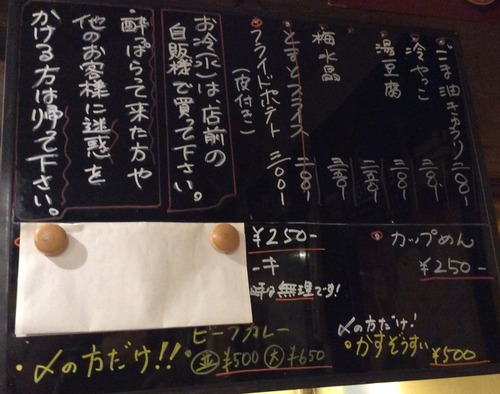 ごま油きゅうり 200-
冷やっこ 200-
湯豆腐 300-
梅水晶 350-
とまとスライス 200-
フライドポテト 300-
(皮付き)
お冷(水)は、店前の
自販機で買って下さい。
酔ぱらって来た方や
他のお客様に迷惑を
かける方は帰って下さい。
¥250-
ーキ
時は無理です!
カップめん
¥250-
ビーフカレー
並 ¥500 大 ¥650
〆の方だけ!!
〆の方だけ!
かすぞうすい ¥500